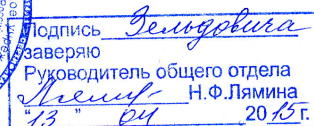 Подпись Зельдовича
заверяю
Руководитель общего отдела
Н.Ф.Лямина
"13" 04 2015г.